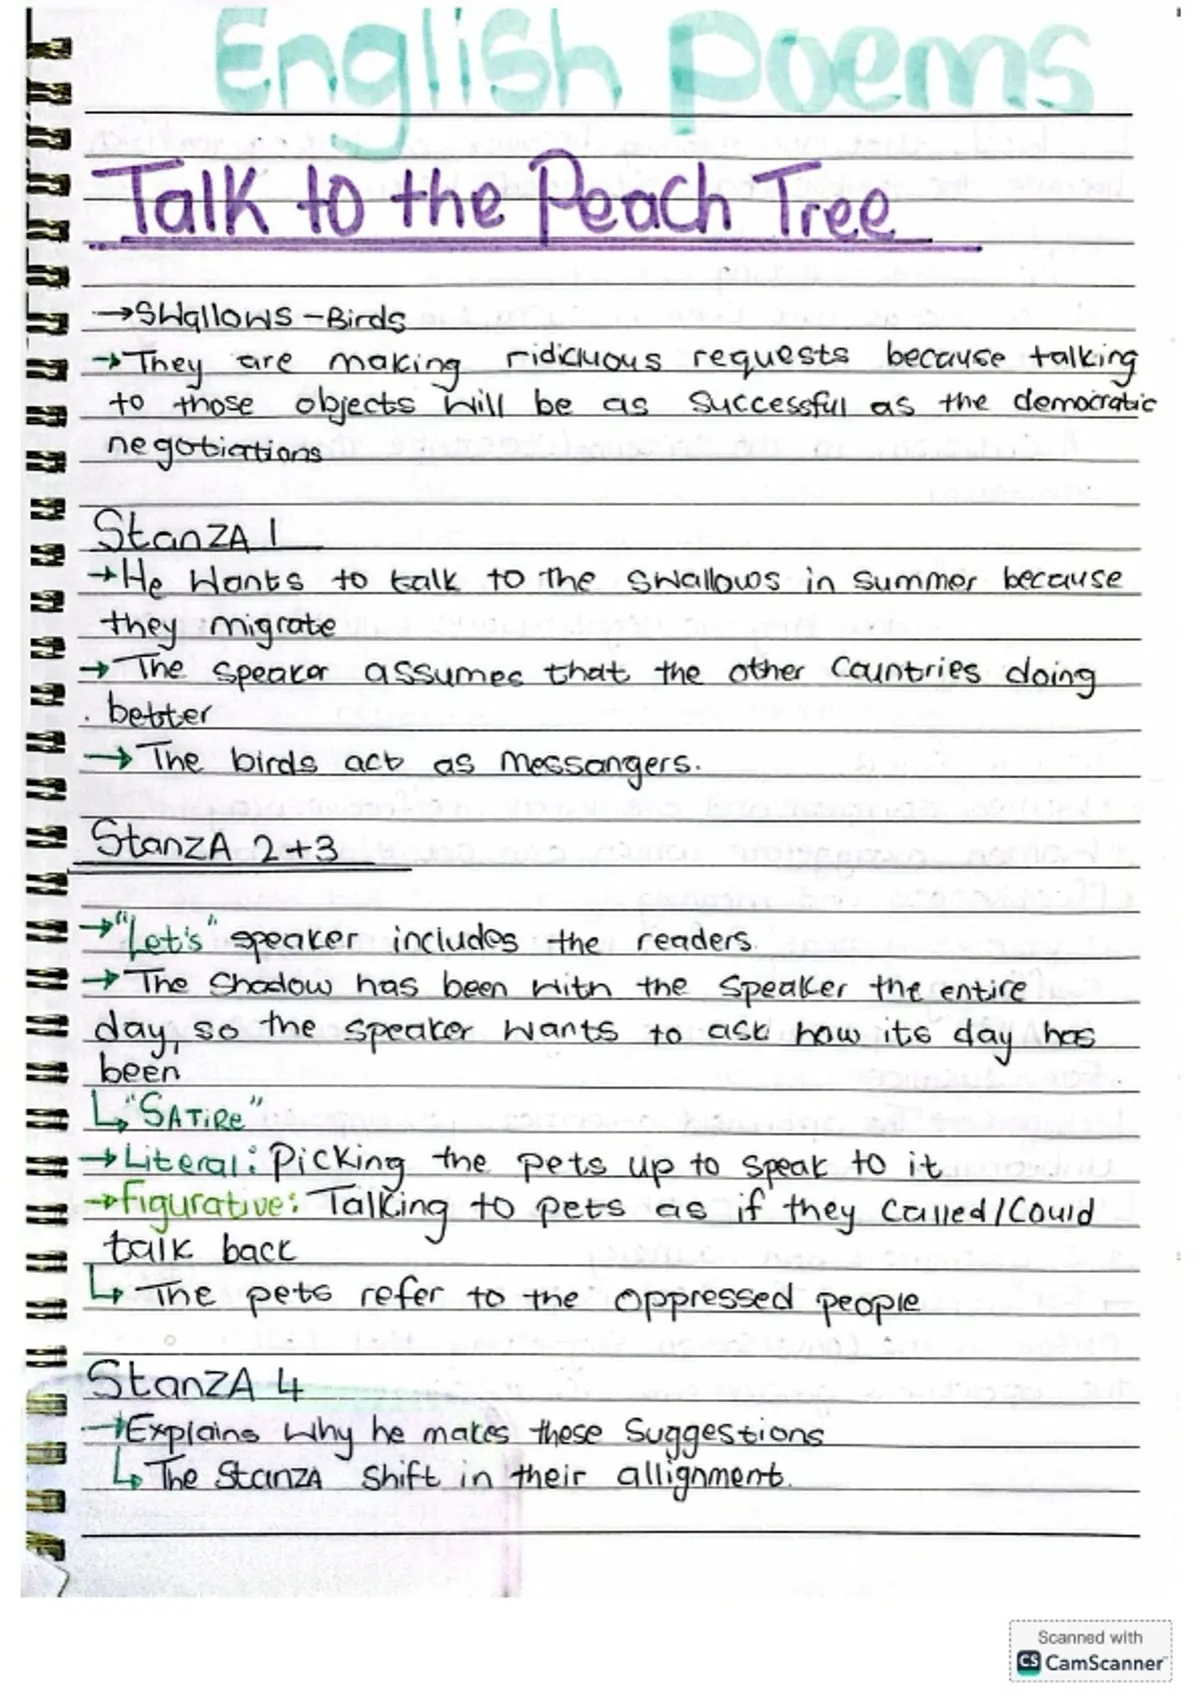 English Poems
Talk to the Peach Tree
→Swallows - Birds
→They are making ridicluous requests because talking
to those objects will be as successful as the democratic
negotiations
Stanza 1
→He wants to talk to the swallows in summer because
they migrate
→ The speaker assumes that the other countries doing
better
→ The birds act as messangers.
Stanza 2+3
→"Let's" speaker includes the readers
→ The shadow has been with the speaker the entire
day, so the speaker wants to ask how its day has
been
↳"SATiRe"
→Literal: Picking the pets up to speak to it
→Figurative: Talking to pets as if they called/could
talk back
↳ The pets refer to the oppressed people
Stanza 4
→Explains why he makes these suggestions
↳The stanza shift in their allignment.
Scanned with
CS CamScanner